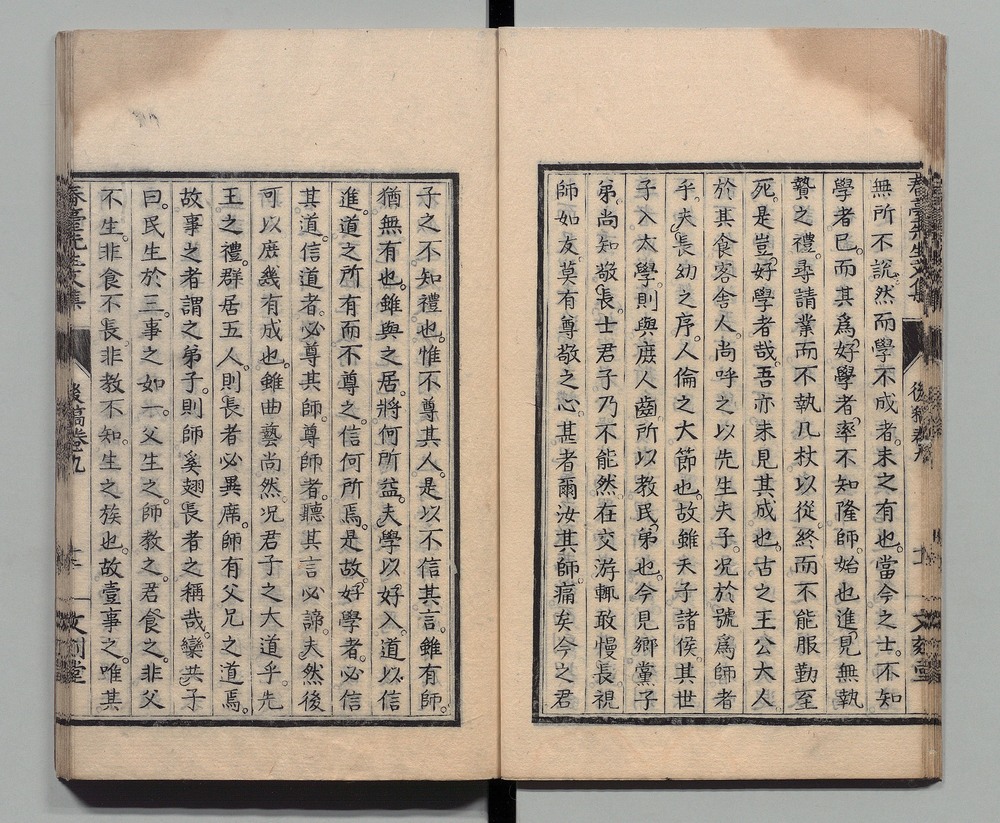 無所不說。然而學不成者。未之有也。當今之士。不知
學者已。而其爲好學者。率不知隆師。始也進見無執
贄之禮。尋請業而不執几杖以從。終而不能服勤至
死。是豈好學者哉。吾亦未見其成也。古之王公大人
於其食客舍人。尚呼之以先生夫子。况於號爲師者
乎。夫長幼之序。人倫之大節也。故雖天子諸侯。其世
子入太學。則與庶人齒。所以教民弟也。今見鄉黨子
弟。尚知敬長。士君子乃不能然。在交游輒敢慢長。視
師如友。莫有尊敬之心。甚者爾汝其師。痛矣今之君
子之不知禮也。惟不尊其人。是以不信其言。雖有師。
猶無有也。雖與之居。將何所益。夫學以好入。道以信
進。道之所有而不尊之。信何所焉。是故好學者。必信
其道。信道者。必尊其師。尊師者。聽其言必諦。夫然後
可以庶幾有成也。雖曲藝尚然。况君子之大道乎。先
王之禮。群居五人。則長者必異席。師有父兄之道焉。
故事之者謂之弟子。則師奚翅長者之稱哉。欒共子
曰。民生於三。事之如一。父生之。師教之。君食之。非父
不生。非食不長。非教不知。生之族也。故壹事之。唯其
春臺先生文集
後稿卷九
文刻堂